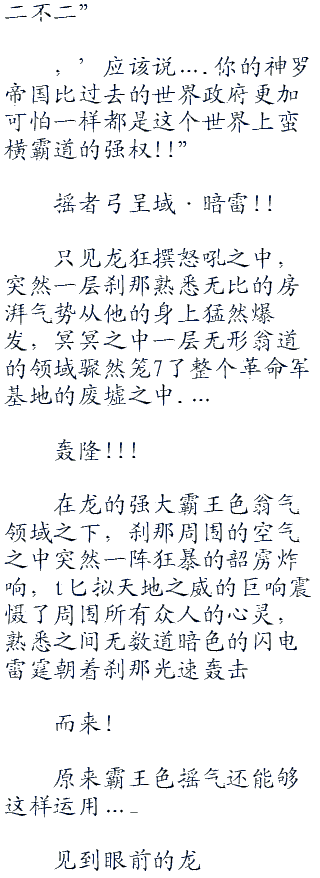 二不二”
，’应该说….你的神罗
帝国比过去的世界政府更加
可怕一样都是这个世界上蛮
横霸道的强权!!”
摇者弓呈域·暗雷!!
只见龙狂撰怒吼之中，
突然一层刹那熟悉无比的房
湃气势从他的身上猛然爆
发，冥冥之中一层无形翁道
的领域骤然笼7了整个革命军
基地的废墟之中.…
轰隆!!!
在龙的强大霸王色翁气
领域之下，刹那周围的空气
之中突然一阵狂暴的韶雳炸
响，t匕拟天地之威的巨响震
慑了周围所有众人的心灵，
熟悉之间无数道暗色的闪电
雷霆朝着刹那光速轰击
而来!
原来霸王色摇气还能够
这样运用…_
见到眼前的龙